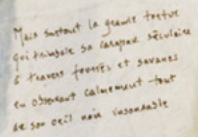 Mais surtout la grande tortue
qui trimbale sa carapace séculaire
à travers fourrés et savanes
en observant calmement tout
de son oeil noir insondable